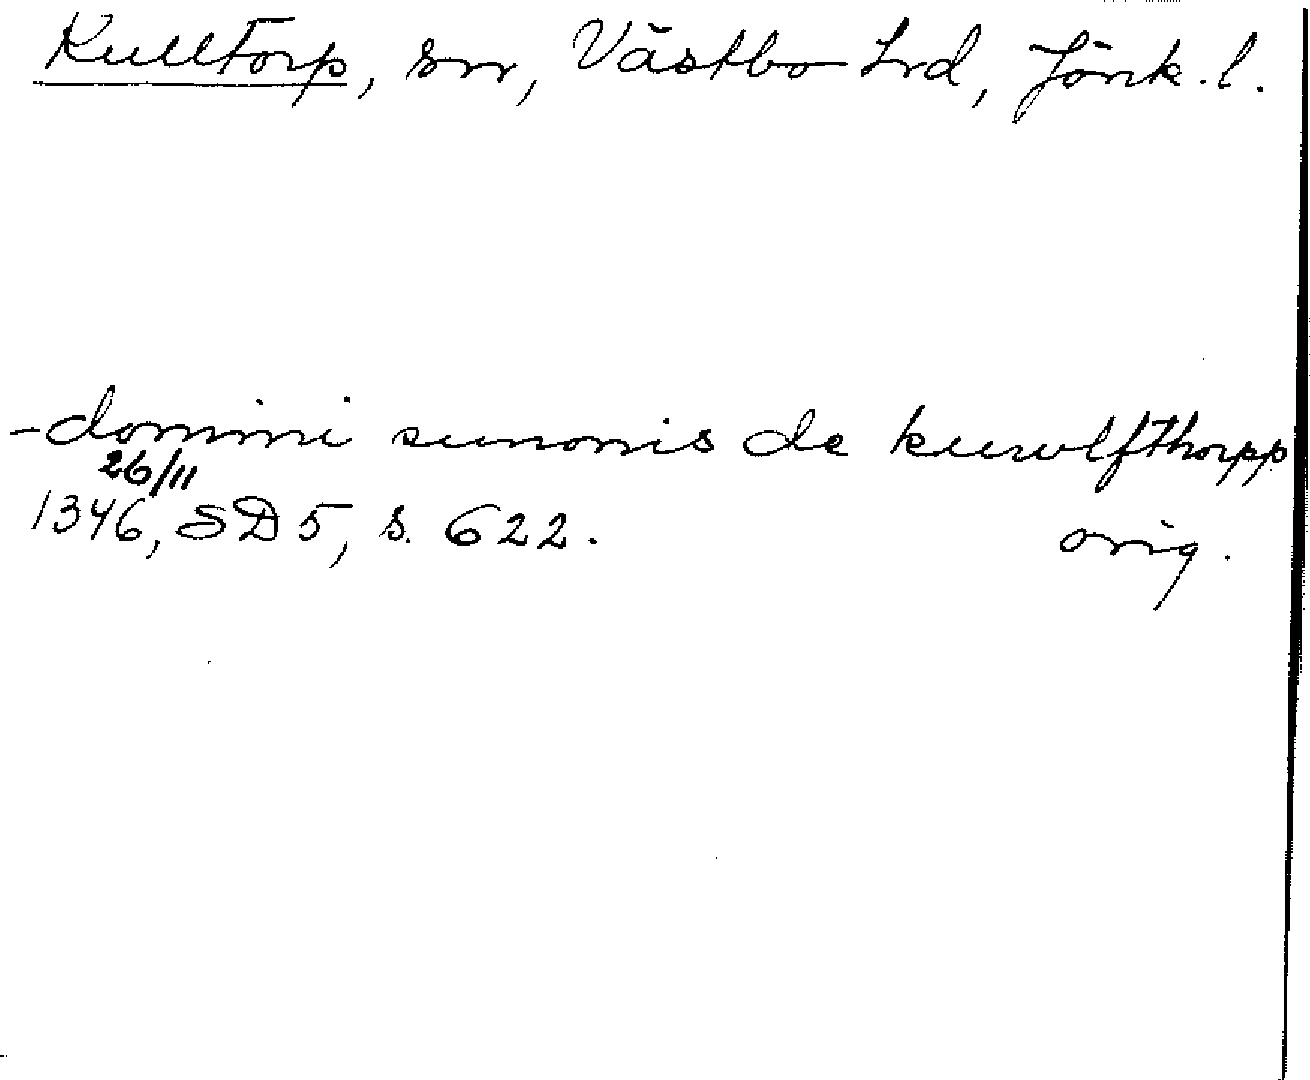 Kulltorp, sn, Västbo hrd, Jönk. l.
- domini sunonis de kuwlfthorpp
26/11
1346, SD 5, s. 622. orig.